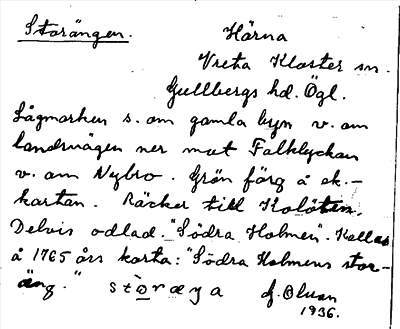 Storängen. Härna
Vreta Kloster sn.
Gullbergs hd. Ögl.
Lågmarken s. om gamla byn v. om
landsvägen ner mot Falklyckan
v. om Nybro. Grön färg å ek.-
kartan. Räcker till Kolötan.
Delvis odlad. "Södra Holmen". Kallas
å 1765 års karta: "Södra Holmens stor-
äng."
1936.